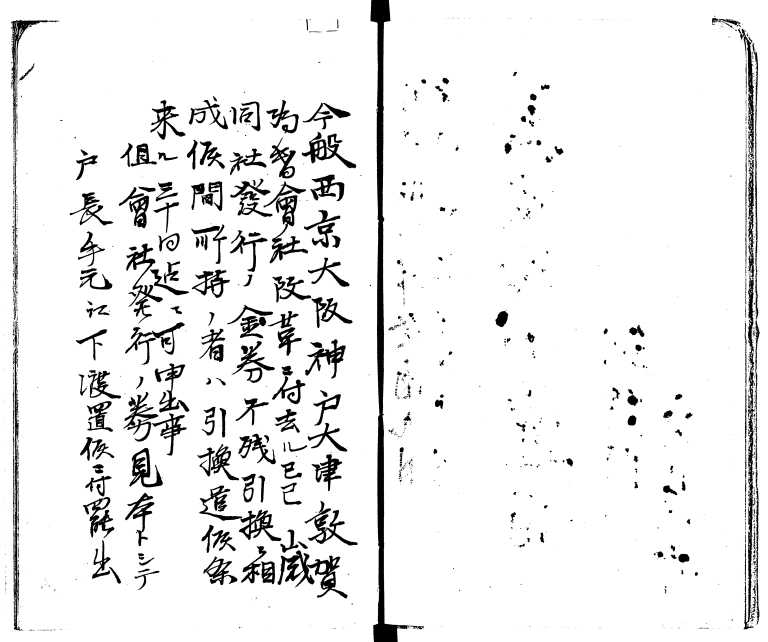 今般西京大阪神戸大津敦賀
為替會社改革ニ付去ル己巳歳
同社發行ノ金券不残引換ニ相
成候間所持ノ者ハ引換遣候条
来ル三十日迠ニ可申出事
但會社発行ノ券見本トシテ
戸長手元江下渡置候ニ付罷出